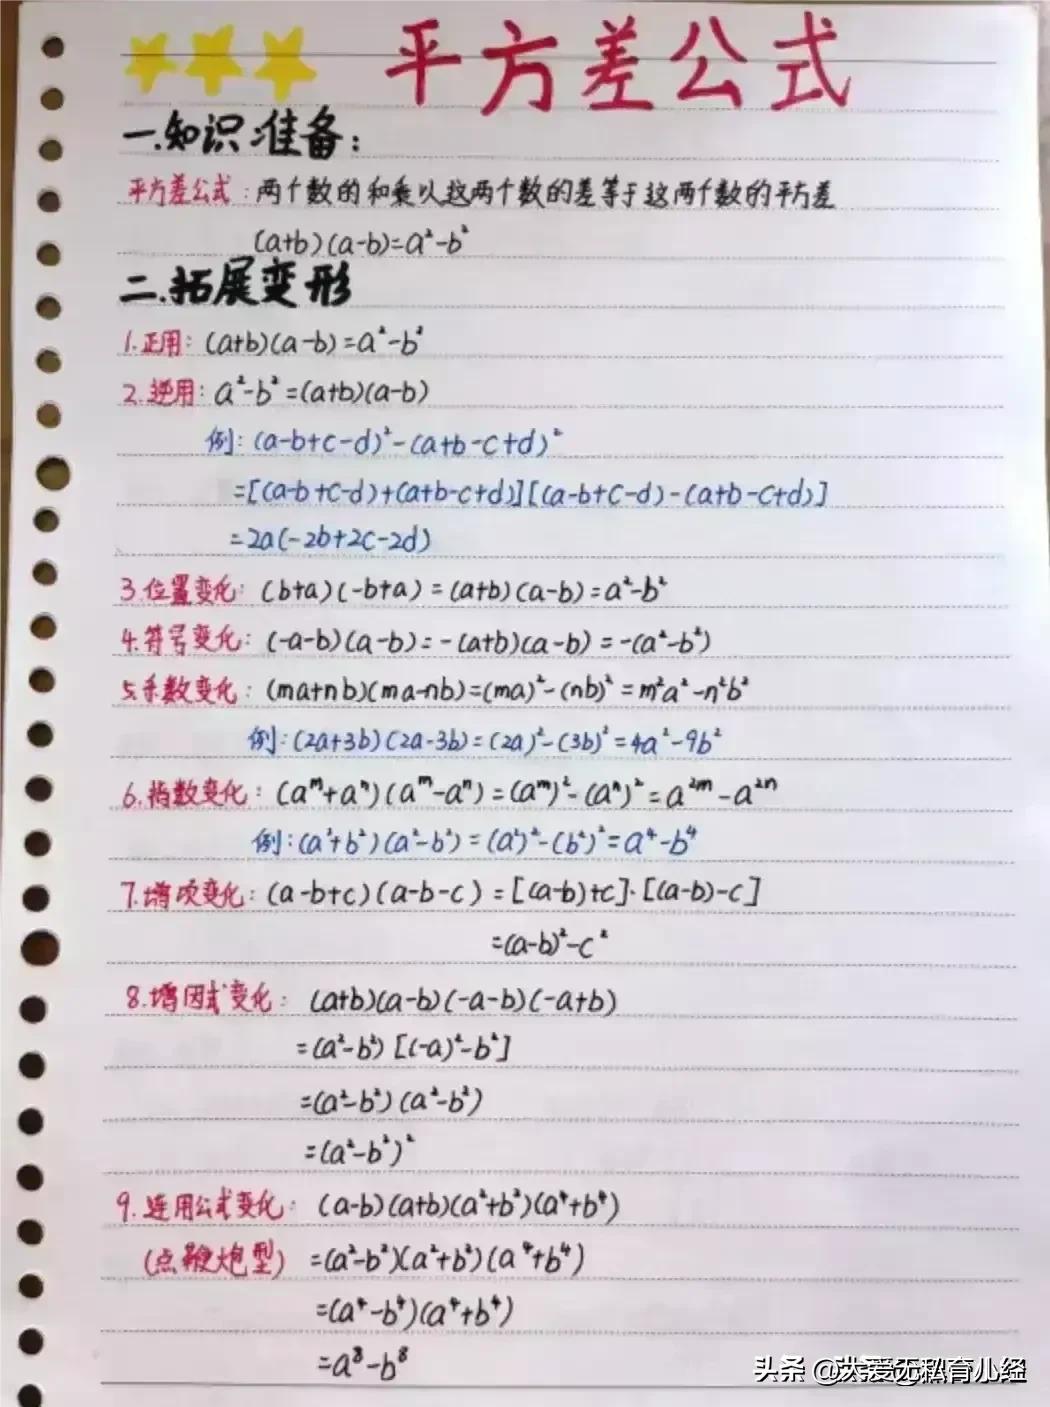 平方差公式
一.知识准备:
平方差公式:两个数的和乘以这两个数的差等于这两个数的平方差
(a+b)(a-b)=a²-b²
二.拓展变形
1.正用:(a+b)(a-b)=a²-b²
2.逆用:a²-b²=(a+b)(a-b)
例:(a-b+c-d)²-(a+b-c+d)²
=[(a-b+c-d)+(a+b-c+d)][(a-b+c-d)-(a+b-c+d)]
=2a(-2b+2c-2d)
3.位置变化:(b+a)(-b+a)=(a+b)(a-b)=a²-b²
4.符号变化:(-a-b)(a-b)=-(a+b)(a-b)=-(a²-b²)
5.系数变化:(ma+nb)(ma-nb)=(ma)²-(nb)²=m²a²-n²b²
例:(2a+3b)(2a-3b)=(2a)²-(3b)²=4a²-9b²
6.指数变化:(aᵐ+aⁿ)(aᵐ-aⁿ)=(aᵐ)²-(aⁿ)²=a²ᵐ-a²ⁿ
例:(a²+b²)(a²-b²)=(a²)²-(b²)²=a⁴-b⁴
7.增项变化:(a-b+c)(a-b-c)=[(a-b)+c]·[(a-b)-c]
=(a-b)²-c²
8.增因式变化:(a+b)(a-b)(-a-b)(-a+b)
=(a²-b²)[(-a)²-b²]
=(a²-b²)(a²-b²)
=(a²-b²)²
9.连用公式变化:(a-b)(a+b)(a²+b²)(a⁴+b⁴)
(点鞭炮型) =(a²-b²)(a²+b²)(a⁴+b⁴)
=(a⁴-b⁴)(a⁴+b⁴)
=a⁸-b⁸
头条 @大爱无私育儿经